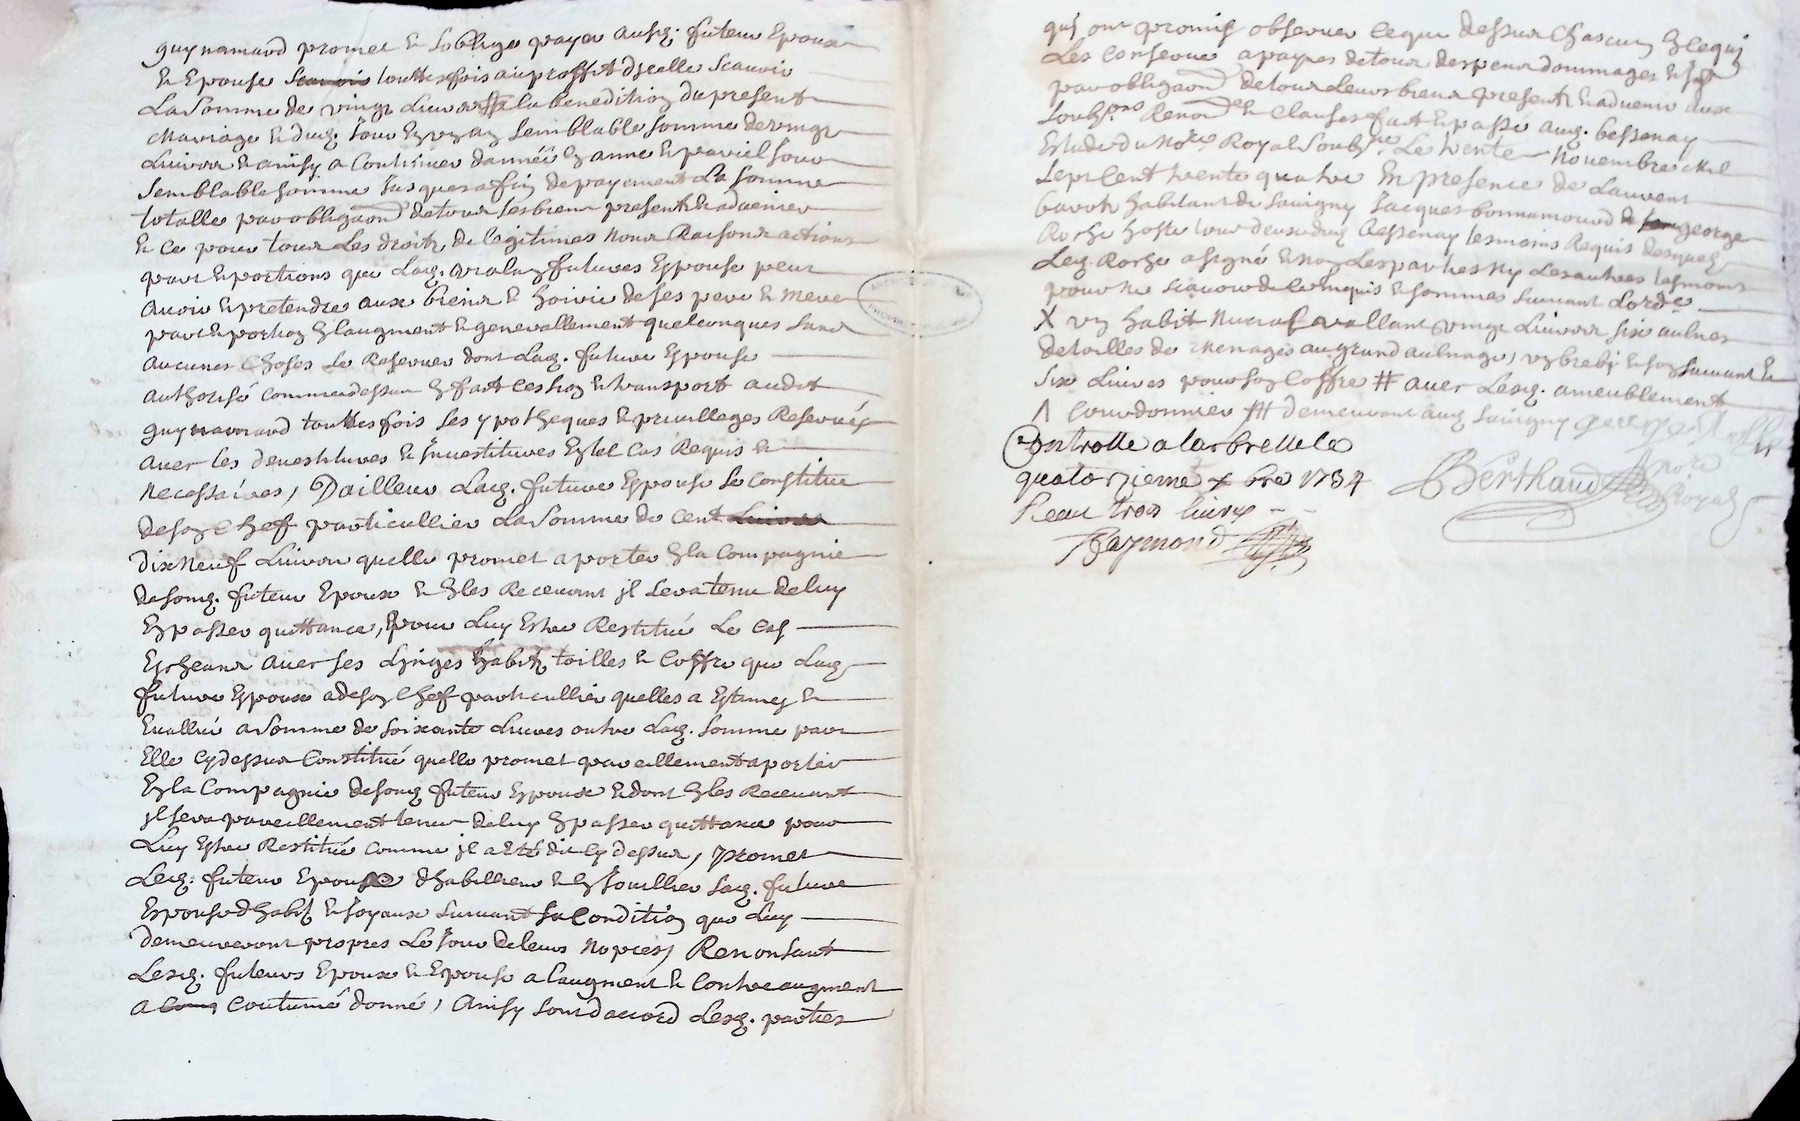 guy namard promet & soblige payer ausd. futeur Epoux
& Epouse scavoir touttesfois au proffit dicelle scavoir
La somme de vingt Livres a la Benedition du present
Mariage & dud. jour En un an semblable somme de vingt
Livres & ainsy a Continuer dannée En anne & pareil jour
semblable somme jusques a fin de payement La somme
totalle par obliga.on de tous ses biens presents & advenier
& ce pour tous Les droits de Legitimes Noms Raisons actions
parts & portions que Lad. future Epouse peut
Avoir & pretendre aux biens & hoirie de ses pere & mere
part & portion En laugment & generallement quelconques sans
aucunes Choses se Reserver dont Lad. future Epouse
authorisé comme dessus En fait Cession & transport audit
guy namard touttes fois ses ypotheques & privilleges Reservés
avec les devestitures & investitures En tel Cas Requis &
Necessaires, Dailleur Lad. future Epouse se Constitue
de son Chef particullier La somme de cent Livres
dix Neuf Livres quelle promet aporter En la Compagnie
de sond. futeur Epoux & En les Recevant il sera tenu de luy
En passer quittance, pour Luy Estre Restitué Le Cas
Escheant avec ses Linges habits toilles & Coffre que Lad.
future Epouse a de son Chef particullier quelles a Estimes &
Evallué a somme de soixante Livres outre Lad. somme par
Elle Cy dessus Constitué quelle promet pareillement aporter
En la Compagnie de sond. futeur Epoux & dont En les Recevant
il sera pareillement tenu de luy En passer quittance pour
Luy Estre Restitué comme il a Eté dit Cy dessus, promet
Led. futeur Epoux dhabillier & En Jouillier Lad. future
Epouse dhabits & Joyaux suivant sa Condition que Luy
demeureront propres Le jour de leurs Nopces, Renonsant
Lesd. futeurs Epoux & Epouse a Laugment & Contreaugment
a Coutume donné, Ainsy sont d'accord Lesd. parties
qui ont promis observer Ce que dessus Chascun En Ce qui
Les Conserne a paynes de tous despens dommages &
par obliga.on de tous Leurs biens presents & advenir aux
soub.ons Renon.on & Clauses fait & passé aud. bessenay
Estude du No.re Royal soubs.né Le trente Novembre Mil
sept Cent trente quatre En presence de Laurent
habitant de savigny Jacques bonnamour & george
Roche hoste tous deux dud. Bessenay tesmoins Requis desquels
Led. Roche a signé & Non Les parties Ny Les autres tesmoins
pour Ne scavoir de Ce Enquis & sommes suivant Lord.ce
X un habit Nuptial vallant vingt Livres six aulnes
de toilles de Menages au grand aulnage, un brebi & son suivant &
six Livres pour son Coffre # avec Lesd. ameublement
Λ Courdonnier # demeurant aud savigny
Controlle a larbrelle le
quatorzieme xbre 1734
Receu trois livres
Berthaud no.re Royal
Raymond